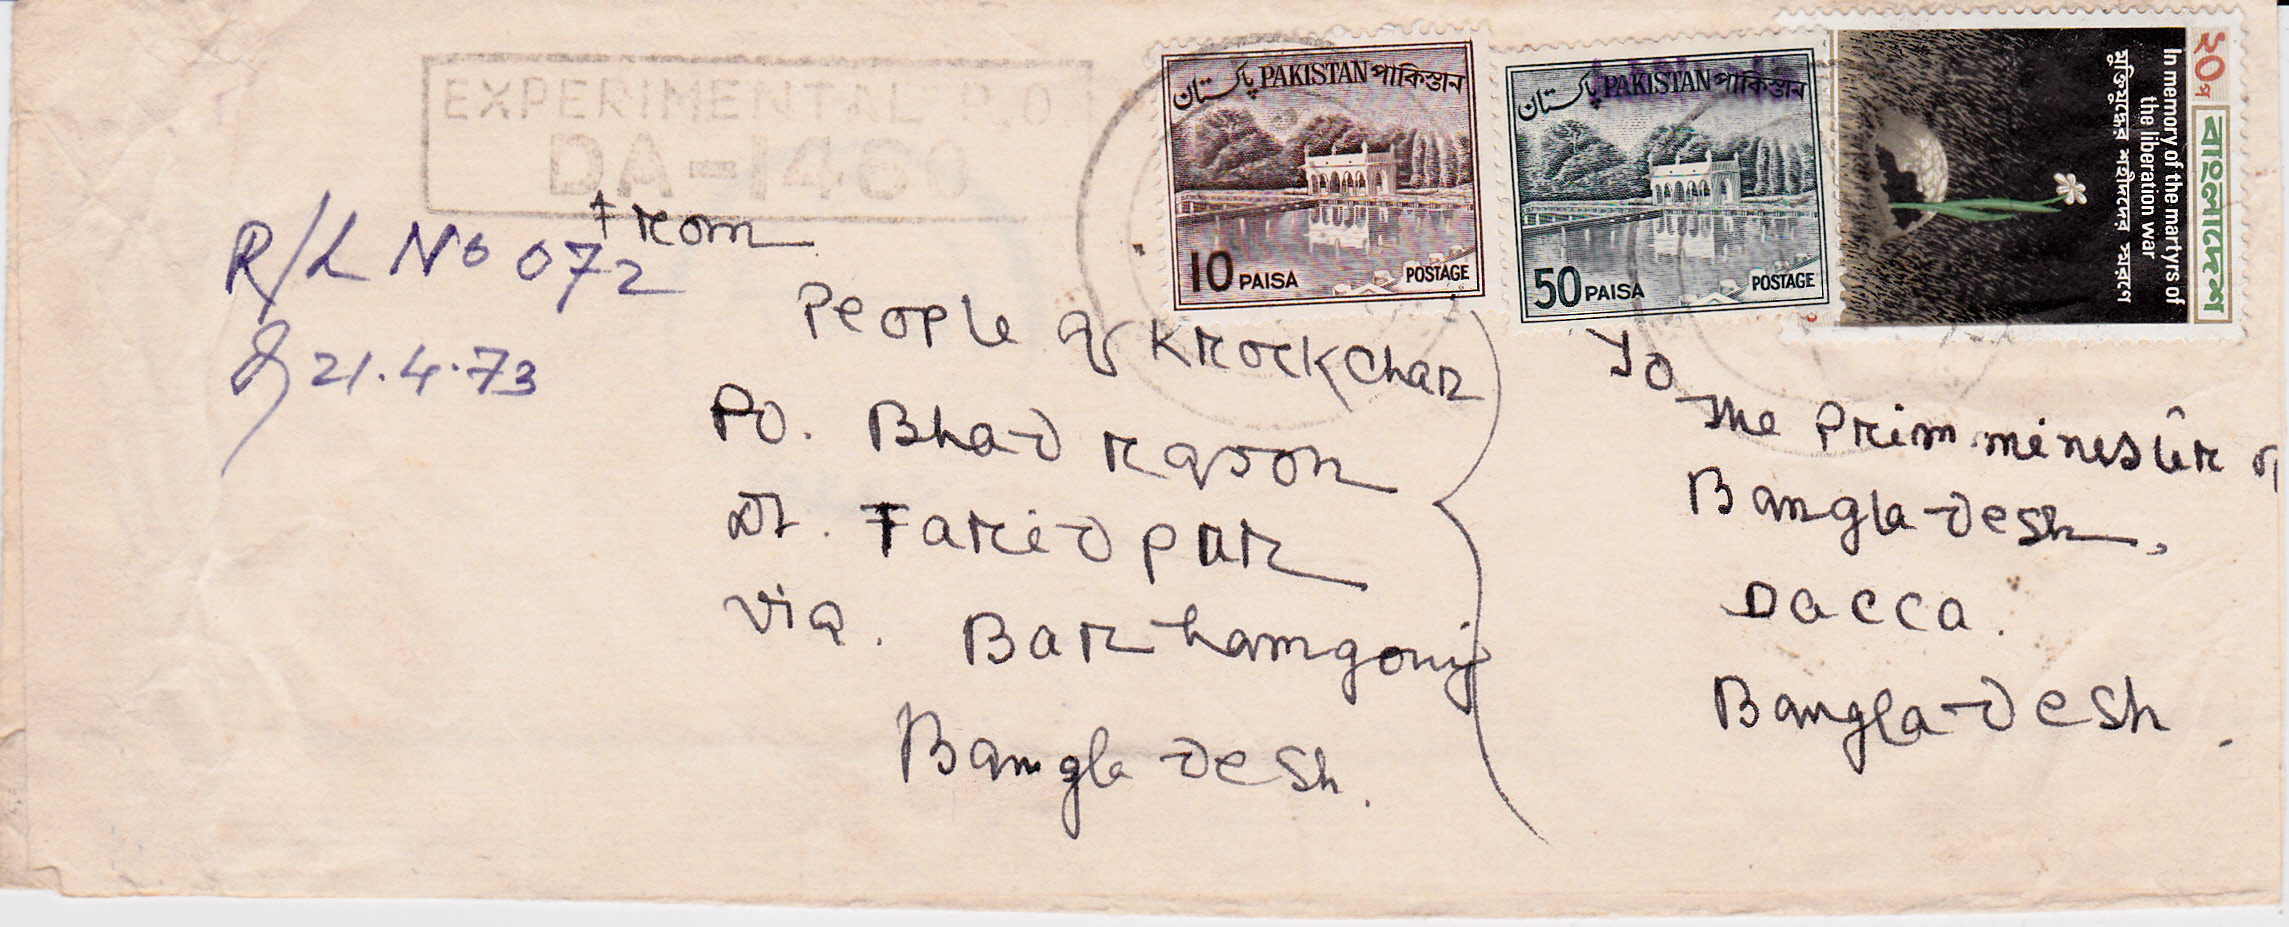 EXPERIMENTAL P.O
DA-1460
R/L No 072
21.4.73
From
People of Krockchar
Po. Bhadrason
Dt. Faridpur
Via. Barhamgonj
Bangladesh.
پاکستان PAKISTAN পাকিস্তান
10 PAISA POSTAGE
پاکستان PAKISTAN পাকিস্তান
50 PAISA POSTAGE
২০ প
বাংলাদেশ
In memory of the martyrs of
the liberation war
মুক্তিযুদ্ধের শহীদদের স্মরণে
To
The Prim minester of
Bangla-desh,
Dacca.
Bangla-desh.